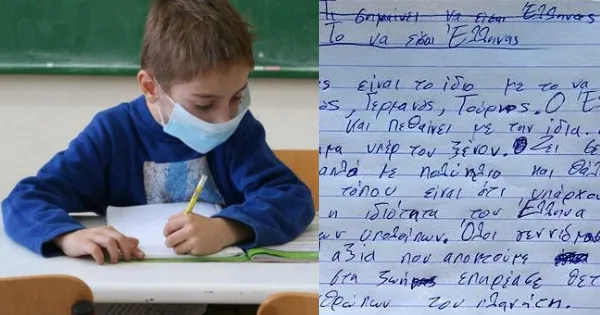 Τι σημαίνει να είσαι Έλληνας
Το να είσαι Έλληνας
ς είναι το ίδιο με το να
ός, Γερμανός, Τούρκος. Ο Έ
και πεθαίνει με την ίδια
μα υπέρ του ξένου. Ζει σε
με πολύπλητο και θά
τόπου είναι ότι υπάρχου
η ιδιότητα του Έλληνα
ων υπολοίπων. Όλοι γεννιόμα
αξία που αποκτούμε
στα ζωή επηρέασε θετ
θρώπων του πλανήτη.